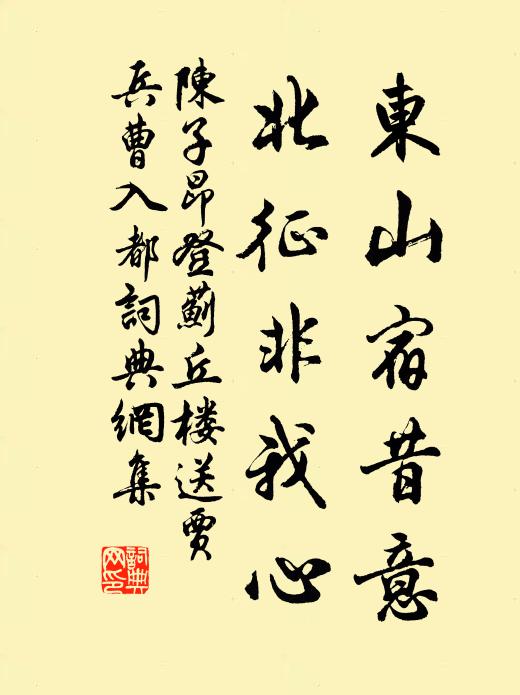 東山宿昔意
北征非我心
陳子昂登薊丘楼送賈
兵曹入都詞典網集
詞典网印